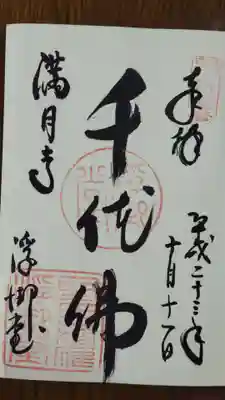 奉拝
平成二十三年
十月十一日
千体佛
満月寺
浮御堂